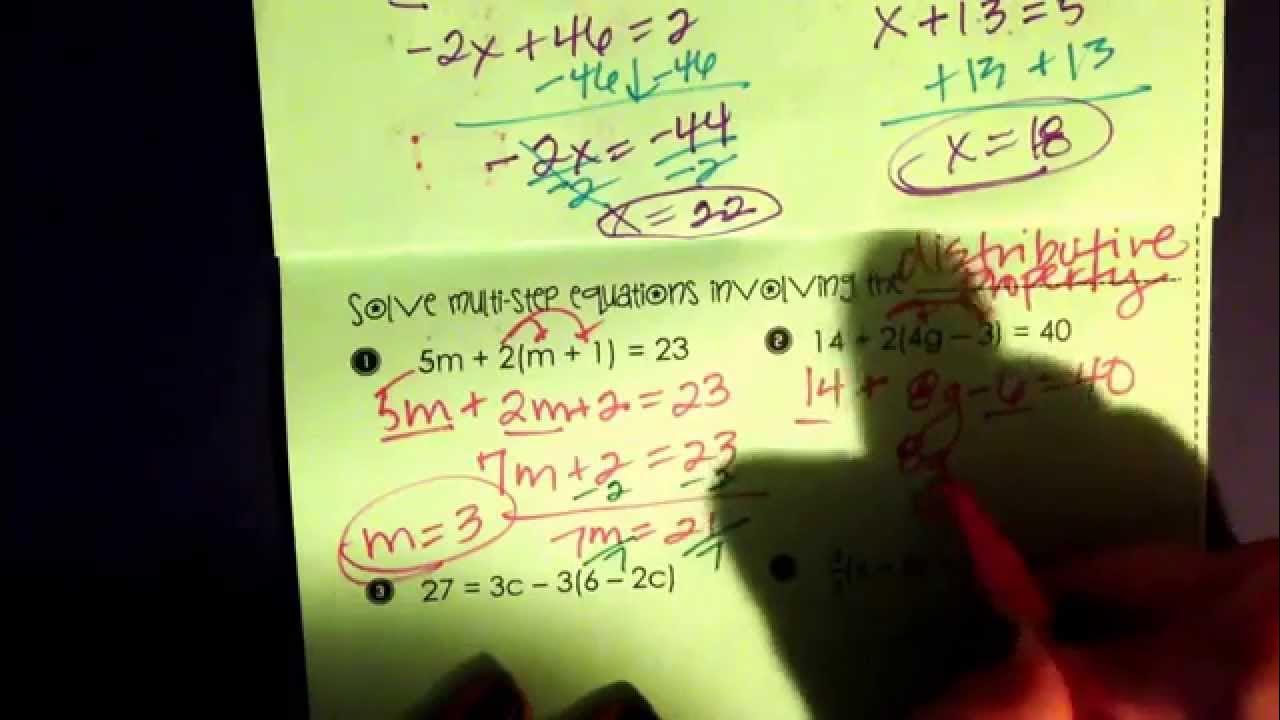 -2x + 46 = 2
-46 ↓ -46
-2x = -44
-2 -2
x = 22
x + 13 = 5
+13 +13
x = 18
Solve multi-step equations involving the distributive property
1 5m + 2(m + 1) = 23
5m + 2m + 2 = 23
7m + 2 = 23
-2 -2
7m = 21
7 7
m = 3
2 14 + 2(4g – 3) = 40
14 + 8g - 6 = 40
8g
3 27 = 3c – 3(6 – 2c)